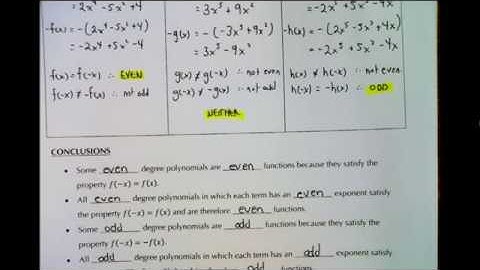 = 2x⁴-5x²+4
= 3x⁵+9x²
= -2x⁵+5x³-4x
-f(x) = -(2x⁴-5x²+4)
= -2x⁴+5x²-4
-g(x) = -(-3x⁵+9x²)
= 3x⁵-9x²
-h(x) = -(2x⁵-5x³+4x)
= -2x⁵+5x³-4x
f(x)=f(-x) ∴ EVEN
f(-x)≠-f(x) ∴ not odd
g(x)≠g(-x) ∴ not even
g(-x)≠-g(x) ∴ not odd
NEITHER
h(x)≠h(-x) ∴ not even
h(-x)=-h(x) ∴ ODD
CONCLUSIONS
• Some even degree polynomials are even functions because they satisfy the
property f(-x) = f(x).
• All even degree polynomials in which each term has an even exponent satisfy
the property f(-x) = f(x) and are therefore even functions.
• Some odd degree polynomials are odd functions because they satisfy the
property f(-x) = -f(x).
• All odd degree polynomials in which each term has an odd exponent satisfy
odd functions.